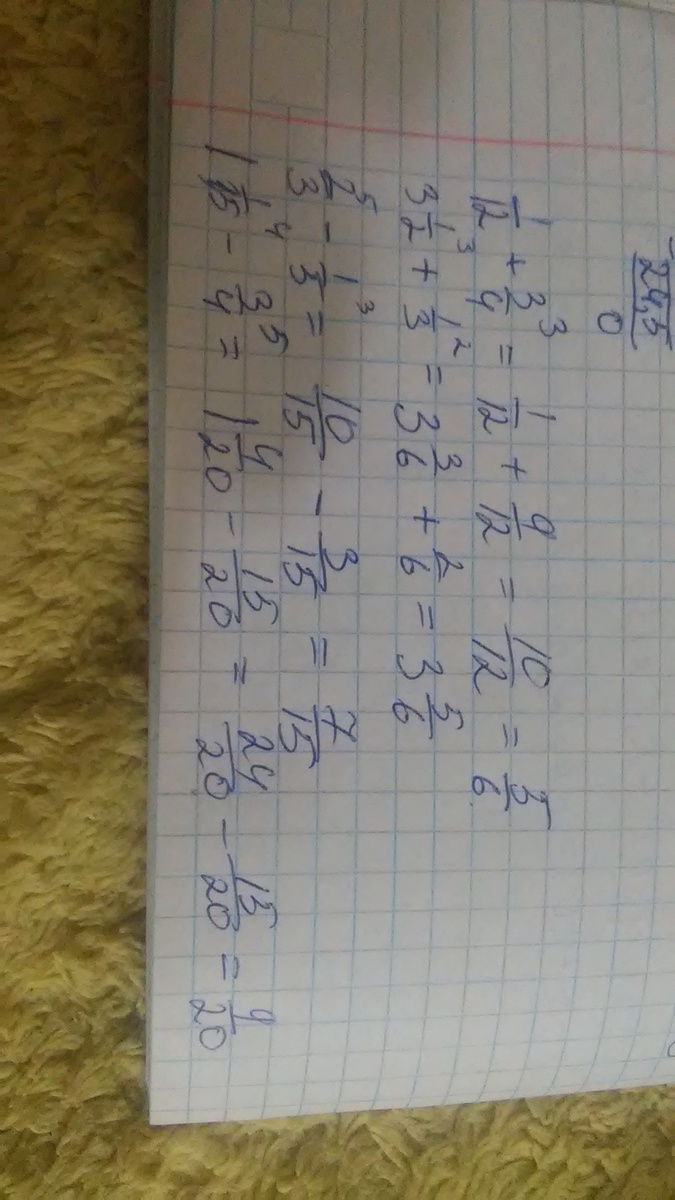 - 24,5
0
1/12 + 3/4 ³ = 1/12 + 9/12 = 10/12 = 5/6
3 1/2 ³ + 1/3 ² = 3 3/6 + 2/6 = 3 5/6
2/3 ⁵ - 1/3 ³ = 10/15 - 3/15 = 7/15
1 1/5 ⁴ - 3/4 ⁵ = 1 4/20 - 15/20 = 24/20 - 15/20 = 9/20